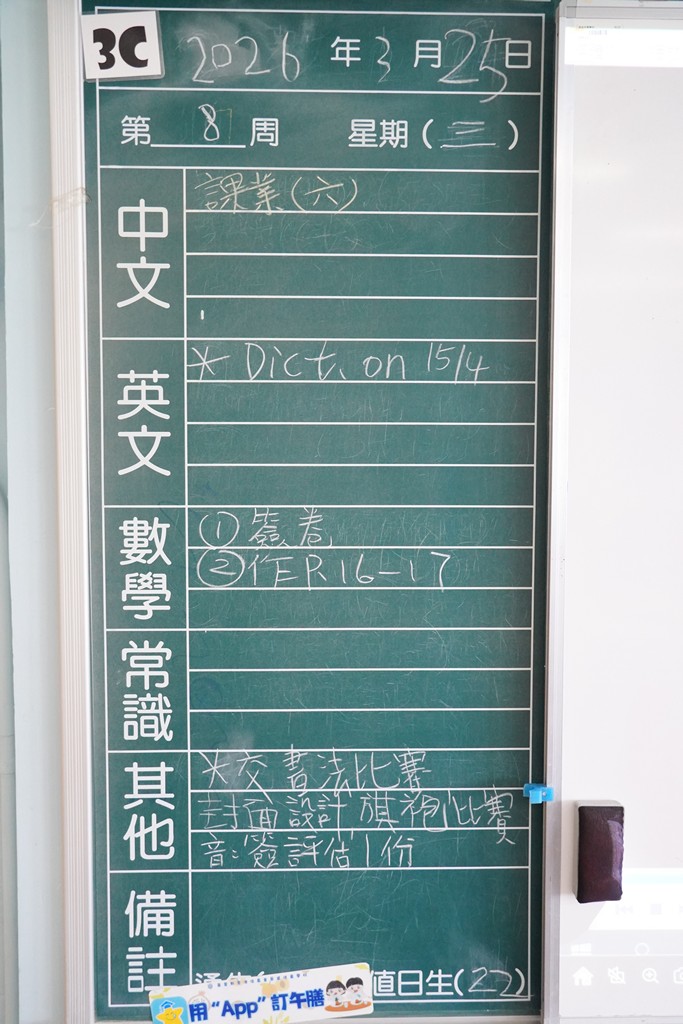 3C
2026年3月25日
第8周 星期(三)
中文
課業(六)
英文
* Dict. on 15/4
數學
① 簽卷
② 作E P.16-17
常識
其他
*交書法比賽
封面設計 旗袍比賽
音:簽評估1份
備註
值日生(22)
用“App”訂午膳